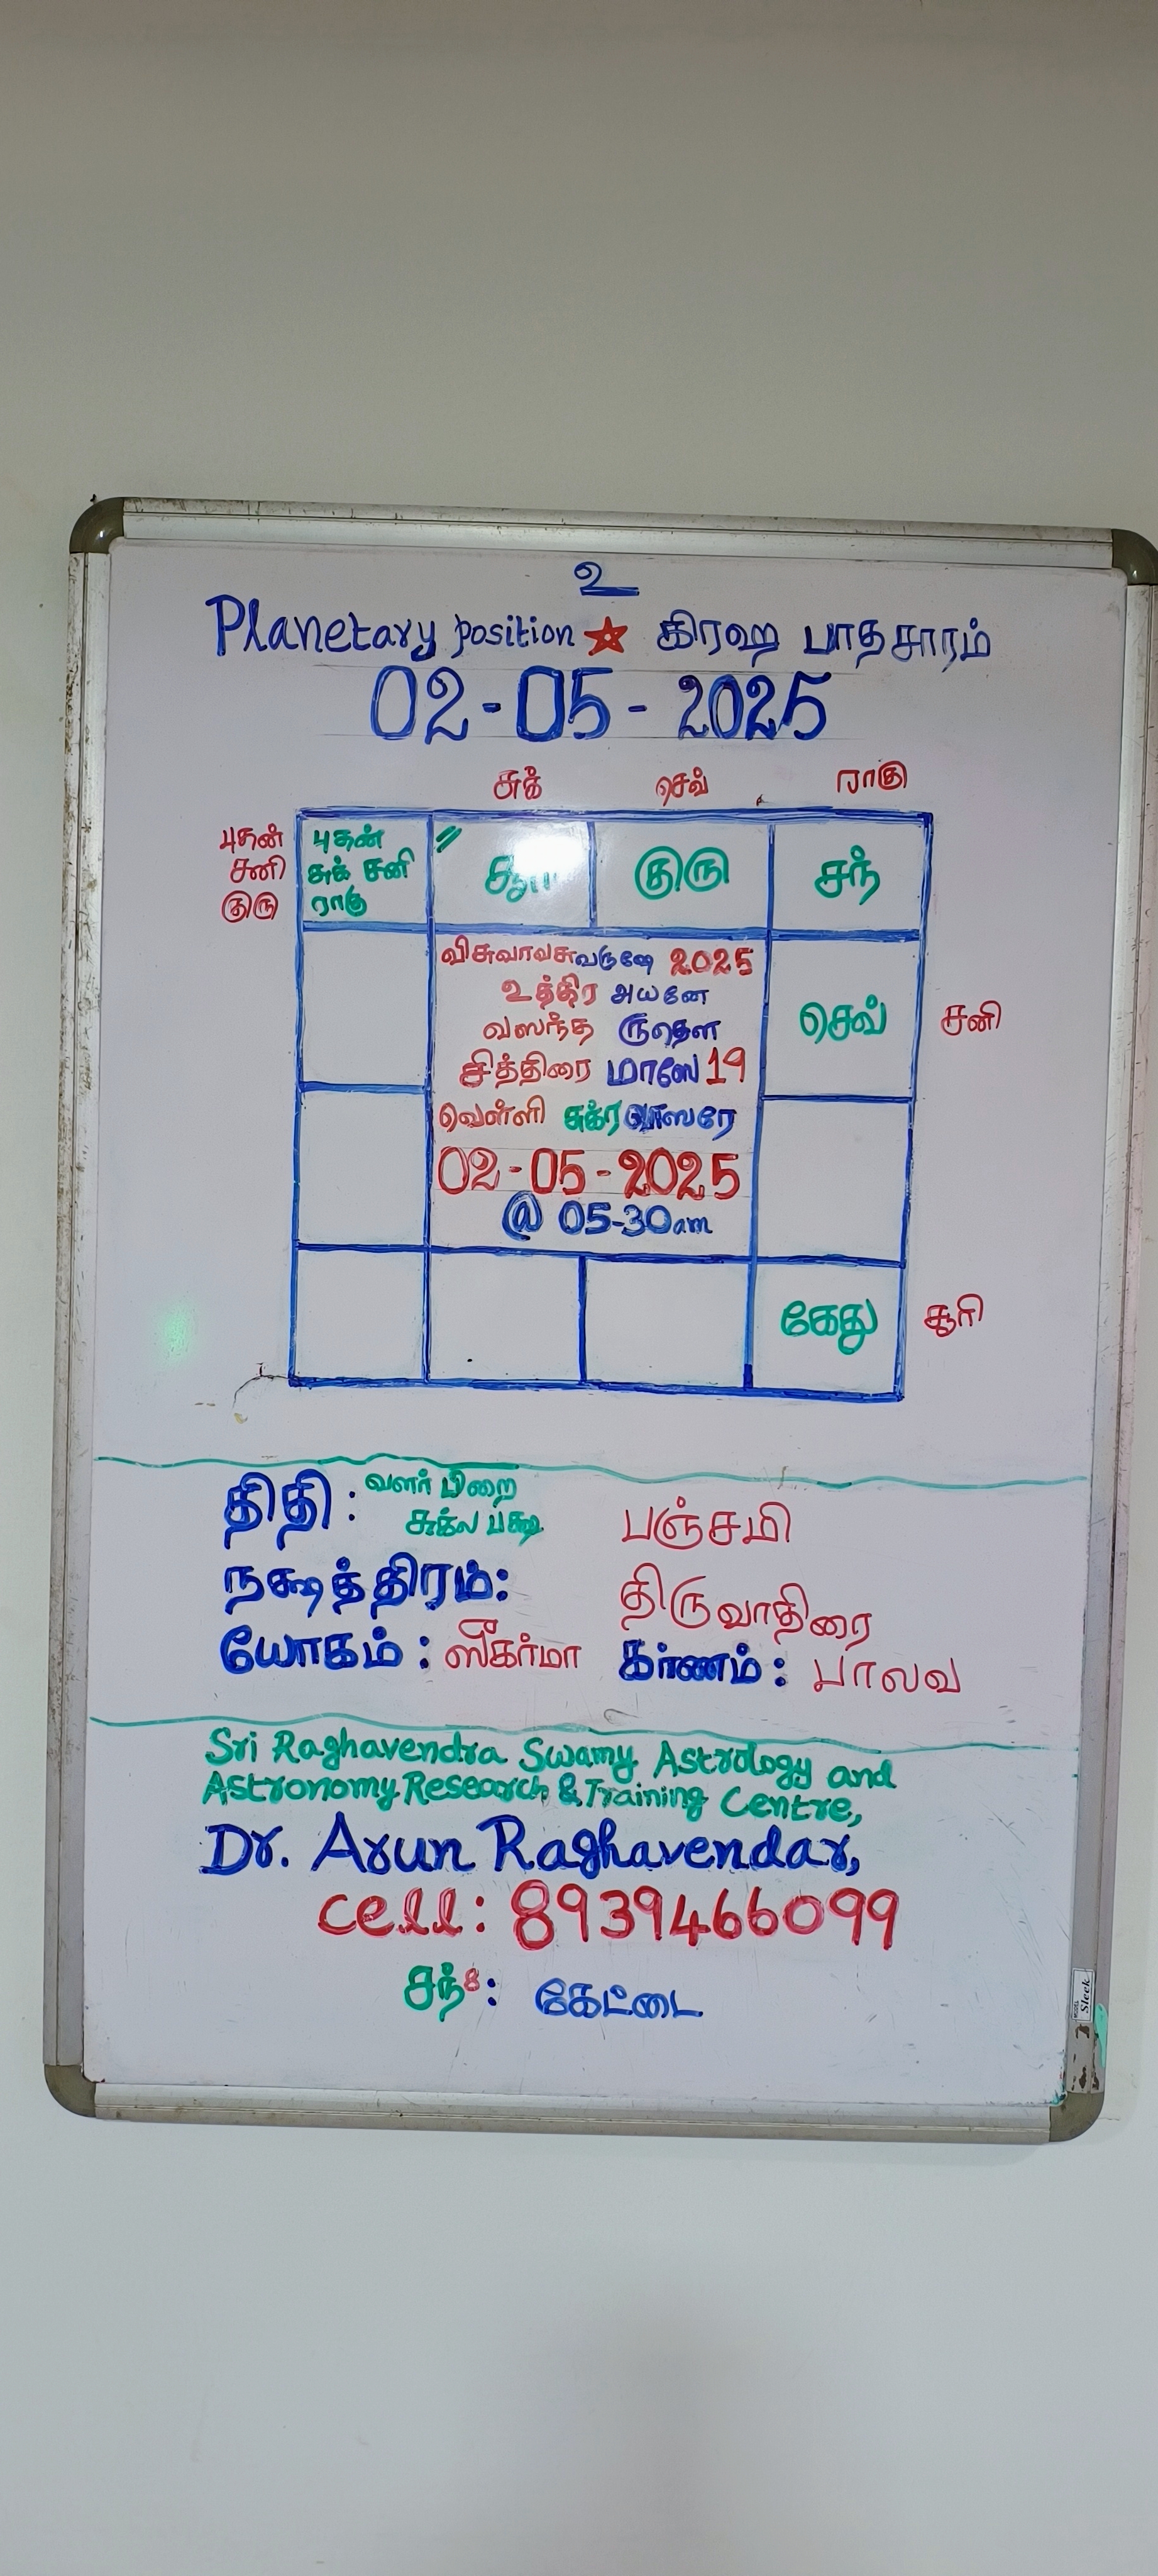 உ
Planetary position ☆ கிரஹ பாதசாரம்
02-05-2025
சுக் செவ் ராகு
புதன்
சனி
குரு
புதன்
சுக் சனி
ராகு
குரு
சந்
விசுவாவசுவருஷே 2025
உத்திர அயனே
வஸந்த ருதௌ
சித்திரை மாஸே 19
வெள்ளி சுக்ரவாஸரே
02-05-2025
@ 05-30am
செவ்
சனி
கேது
சூரி
திதி: வளர் பிறை
சுக்ல பக்ஷ
பஞ்சமி
நக்ஷத்திரம்: திருவாதிரை
யோகம்: ஸீகர்மா கர்ணம்: பாலவ
Sri Raghavendra Swamy Astrology and
Astronomy Research & Training Centre,
Dr. Arun Raghavendar,
cell: 8939466099
சந்8: கேட்டை
Sleek